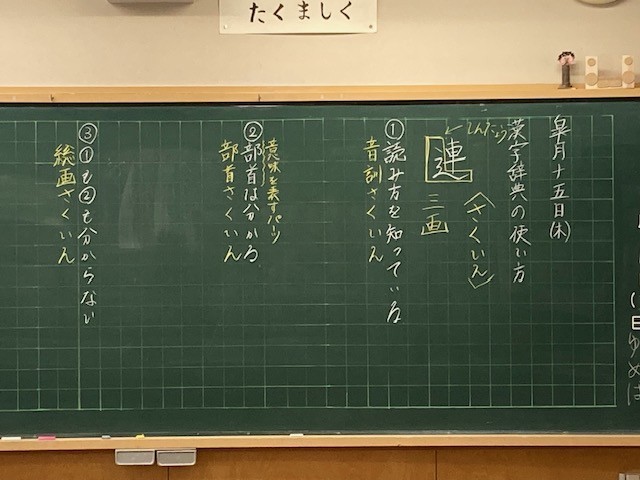 たくましく
皐月十五日(木)
漢字辞典の使い方
〈さくいん〉
連
三画
①読み方を知っている
音訓さくいん
意味を表すパーツ
②部首は分かる
部首さくいん
③①も②も分からない
総画さくいん